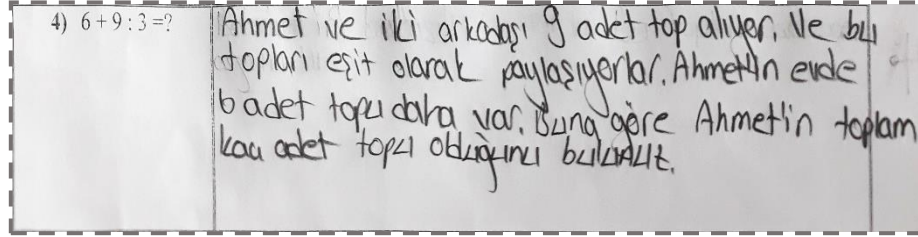 4) 6+9:3=?
Ahmet ve iki arkadaşı 9 adet top alıyor. Ve bu
topları eşit olarak paylaşıyorlar. Ahmet'in evde
6 adet topu daha var. Buna göre Ahmet'in toplam
kaç adet topu olduğunu bulunuz.